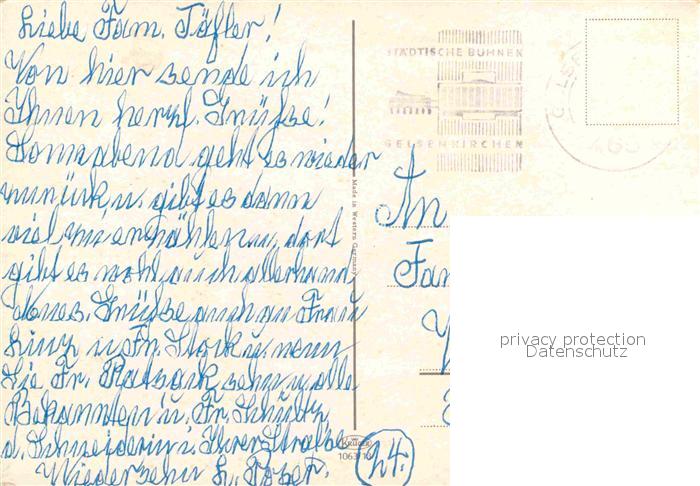 Liebe Fam. Töfler!
Von hier sende ich
Ihnen herzl. Grüße!
Sonnabend geht es wieder
zurück u. gibt es dann
viel zu erzählen u. dort
gibt es wohl auch allerhand
Neues. Grüße auch an Frau
u. Fr. Stock u. wenn
Sie Fr. sehn u. alle
Bekannten u. Fr. Schulz
d. Schneiderin i. Ihrer Straße
Wiedersehn
STÄDTISCHE BÜHNEN
GELSENKIRCHEN
465
Made in Western Germany
An
Fam
privacy protection
Datenschutz
KRÜGER
24.